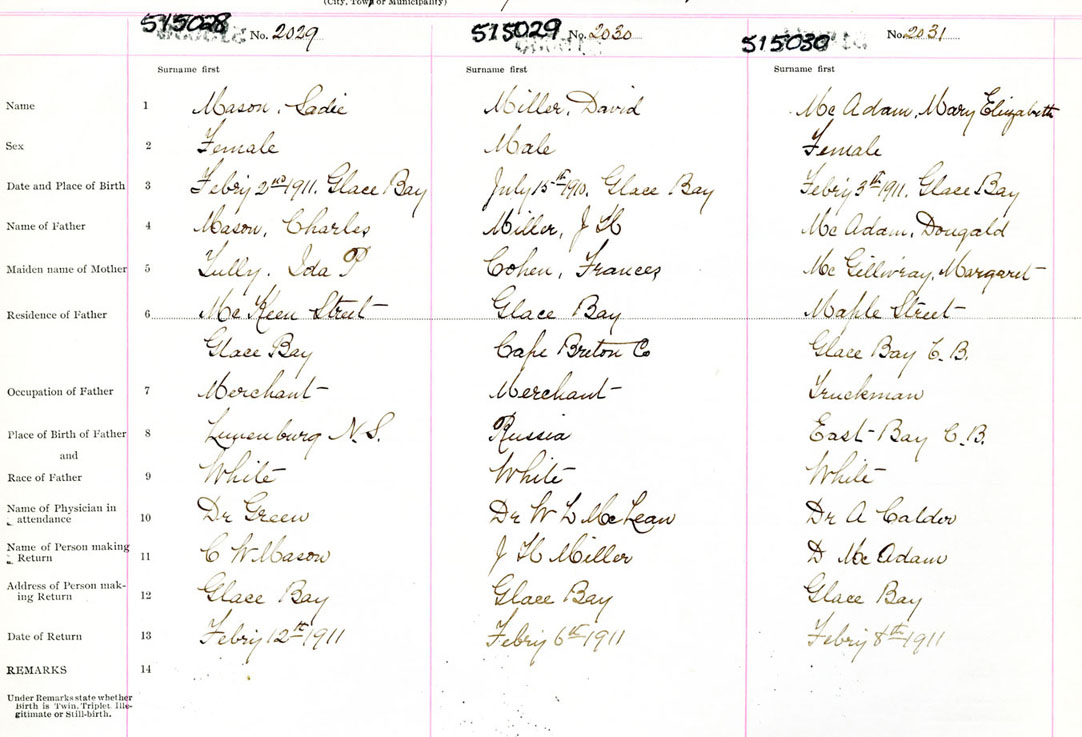 (City, Town or Municipality)
515028 No. 2029 515029 No. 2030 515030 No. 2031
Surname first Surname first Surname first
Name 1 Mason, Sadie Miller, David Mc Adam, Mary Elizabeth
Sex 2 Female Male Female
Date and Place of Birth 3 Febry 2nd 1911. Glace Bay July 15th 1910. Glace Bay Febry 3th 1911. Glace Bay
Name of Father 4 Mason, Charles Miller, J H Mc Adam, Dougald
Maiden name of Mother 5 Tully. Ida P Cohen, Frances Mc Gillivray, Margaret
Residence of Father 6 Mc Keen Street Glace Bay Maple Street
Glace Bay Cape Breton Co Glace Bay C. B.
Occupation of Father 7 Merchant Merchant Truckman
Place of Birth of Father 8 Lunenburg N. S. Russia East Bay C. B.
and
Race of Father 9 White White White
Name of Physician in
attendance 10 Dr Green Dr W L McLean Dr A Calder
Name of Person making
Return 11 C W Mason J H Miller D Mc Adam
Address of Person mak-
ing Return 12 Glace Bay Glace Bay Glace Bay
Date of Return 13 Febry 12th 1911 Febry 6th 1911 Febry 8th 1911
REMARKS 14
Under Remarks state whether
Birth is Twin, Triplet, Ille-
gitimate or Still-birth.